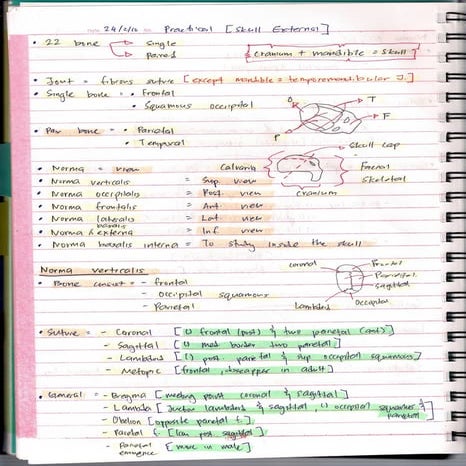 24/2/10 Practical [Skull External]
• 22 bone Single
Paired
Cranium + mandible = skull
• Joint = fibrous suture [except mandible = temporomandibular J.]
• Single bone = • Frontal
• Squamous occipital
O T
F
P
• Pair bone = • Parietal
• Temporal
skull cap
• Norma = view
Calvaria
Facial
skeleton
• Norma verticalis = Sup. view
cranium
• Norma occipitalis = Post view
• Norma frontalis = Ant view
• Norma lateralis = Lat view
• Norma basalis externa = Inf view
• Norma basalis interna = To study inside the skull
Norma verticalis
• Bone consist = - frontal
- occipital squamous
- Parietal
coronal Frontal
Parietal
sagittal
Lambdoid Occipital
• Suture = - Coronal [() frontal (post) & two parietal (ant)]
- Sagittal [() med border two parietal]
- Lambdoid [() post parietal & sup occipital squamous]
- Metopic [frontal, disappear in adult]
• General = - Bregma [meeting point coronal & sagittal]
- Lambda [lambdoid & sagittal, () occipital squamous & parietal]
- Obelion [opposite parietal f.]
- Parietal f. [post sagittal]
- Parietal eminence [more in male]